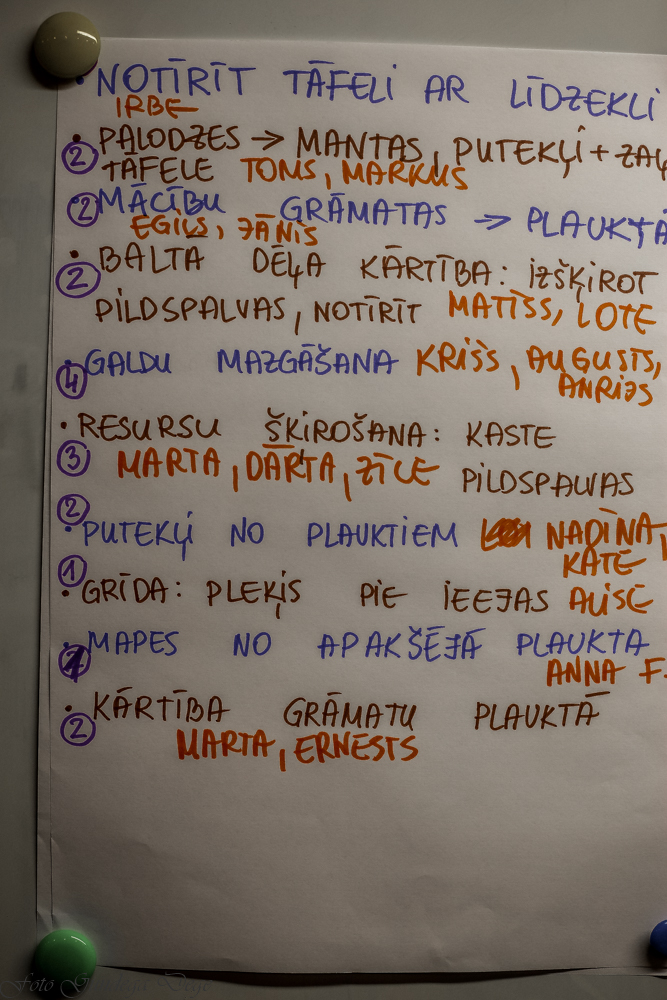 • NOTĪRĪT TĀFELI AR LĪDZEKLI
IRBE
• PALODZES → MANTAS, PUTEKĻI +
② TĀFELE TOMS, MARKUSS
② MĀCĪBU GRĀMATAS → PLAUKTĀ
EGILS, JĀNIS
• BALTĀ DĒĻA KĀRTĪBA: IZŠĶIROT
② PILDSPALVAS, NOTĪRĪT MATĪSS, LOTE
• GALDU MAZGĀŠANA KRIŠS, AUGUSTS,
④ ANRIJS
• RESURSU ŠĶIROŠANA: KASTE
③ MARTA, DĀRTA, ZĪLE PILDSPALVAS
②
• PUTEKĻI NO PLAUKTIEM NADĪNA,
① KATE
• GRĪDA: PLEĶIS PIE IEEJAS ALISE
• MAPES NO APAKŠĒJĀ PLAUKTA
ANNA F.
• KĀRTĪBA GRĀMATU PLAUKTĀ
② MARTA, ERNESTS